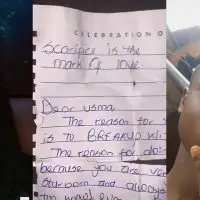 CELEBRATION O
Scarifice is the
mark Of love.
Dear usma
! The reason for
is to BREAKUP Wit
The reason for doin
because you are ver
Stubborn and always